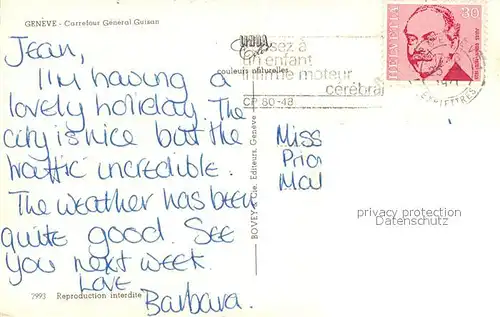 GENÈVE - Carrefour Général Guisan
Jean,
I'm having a
lovely holiday. The
city is nice but the
traffic incredible.
The weather has been
quite good. See
you next week.
Love
Barbara.
7993 Reproduction interdite
couleurs naturelles
BOVEY & Cie, Editeurs, Genève
à
un enfant
moteur
cérébral
CP 60-48
HELVETIA
30
Miss
privacy protection
Datenschutz